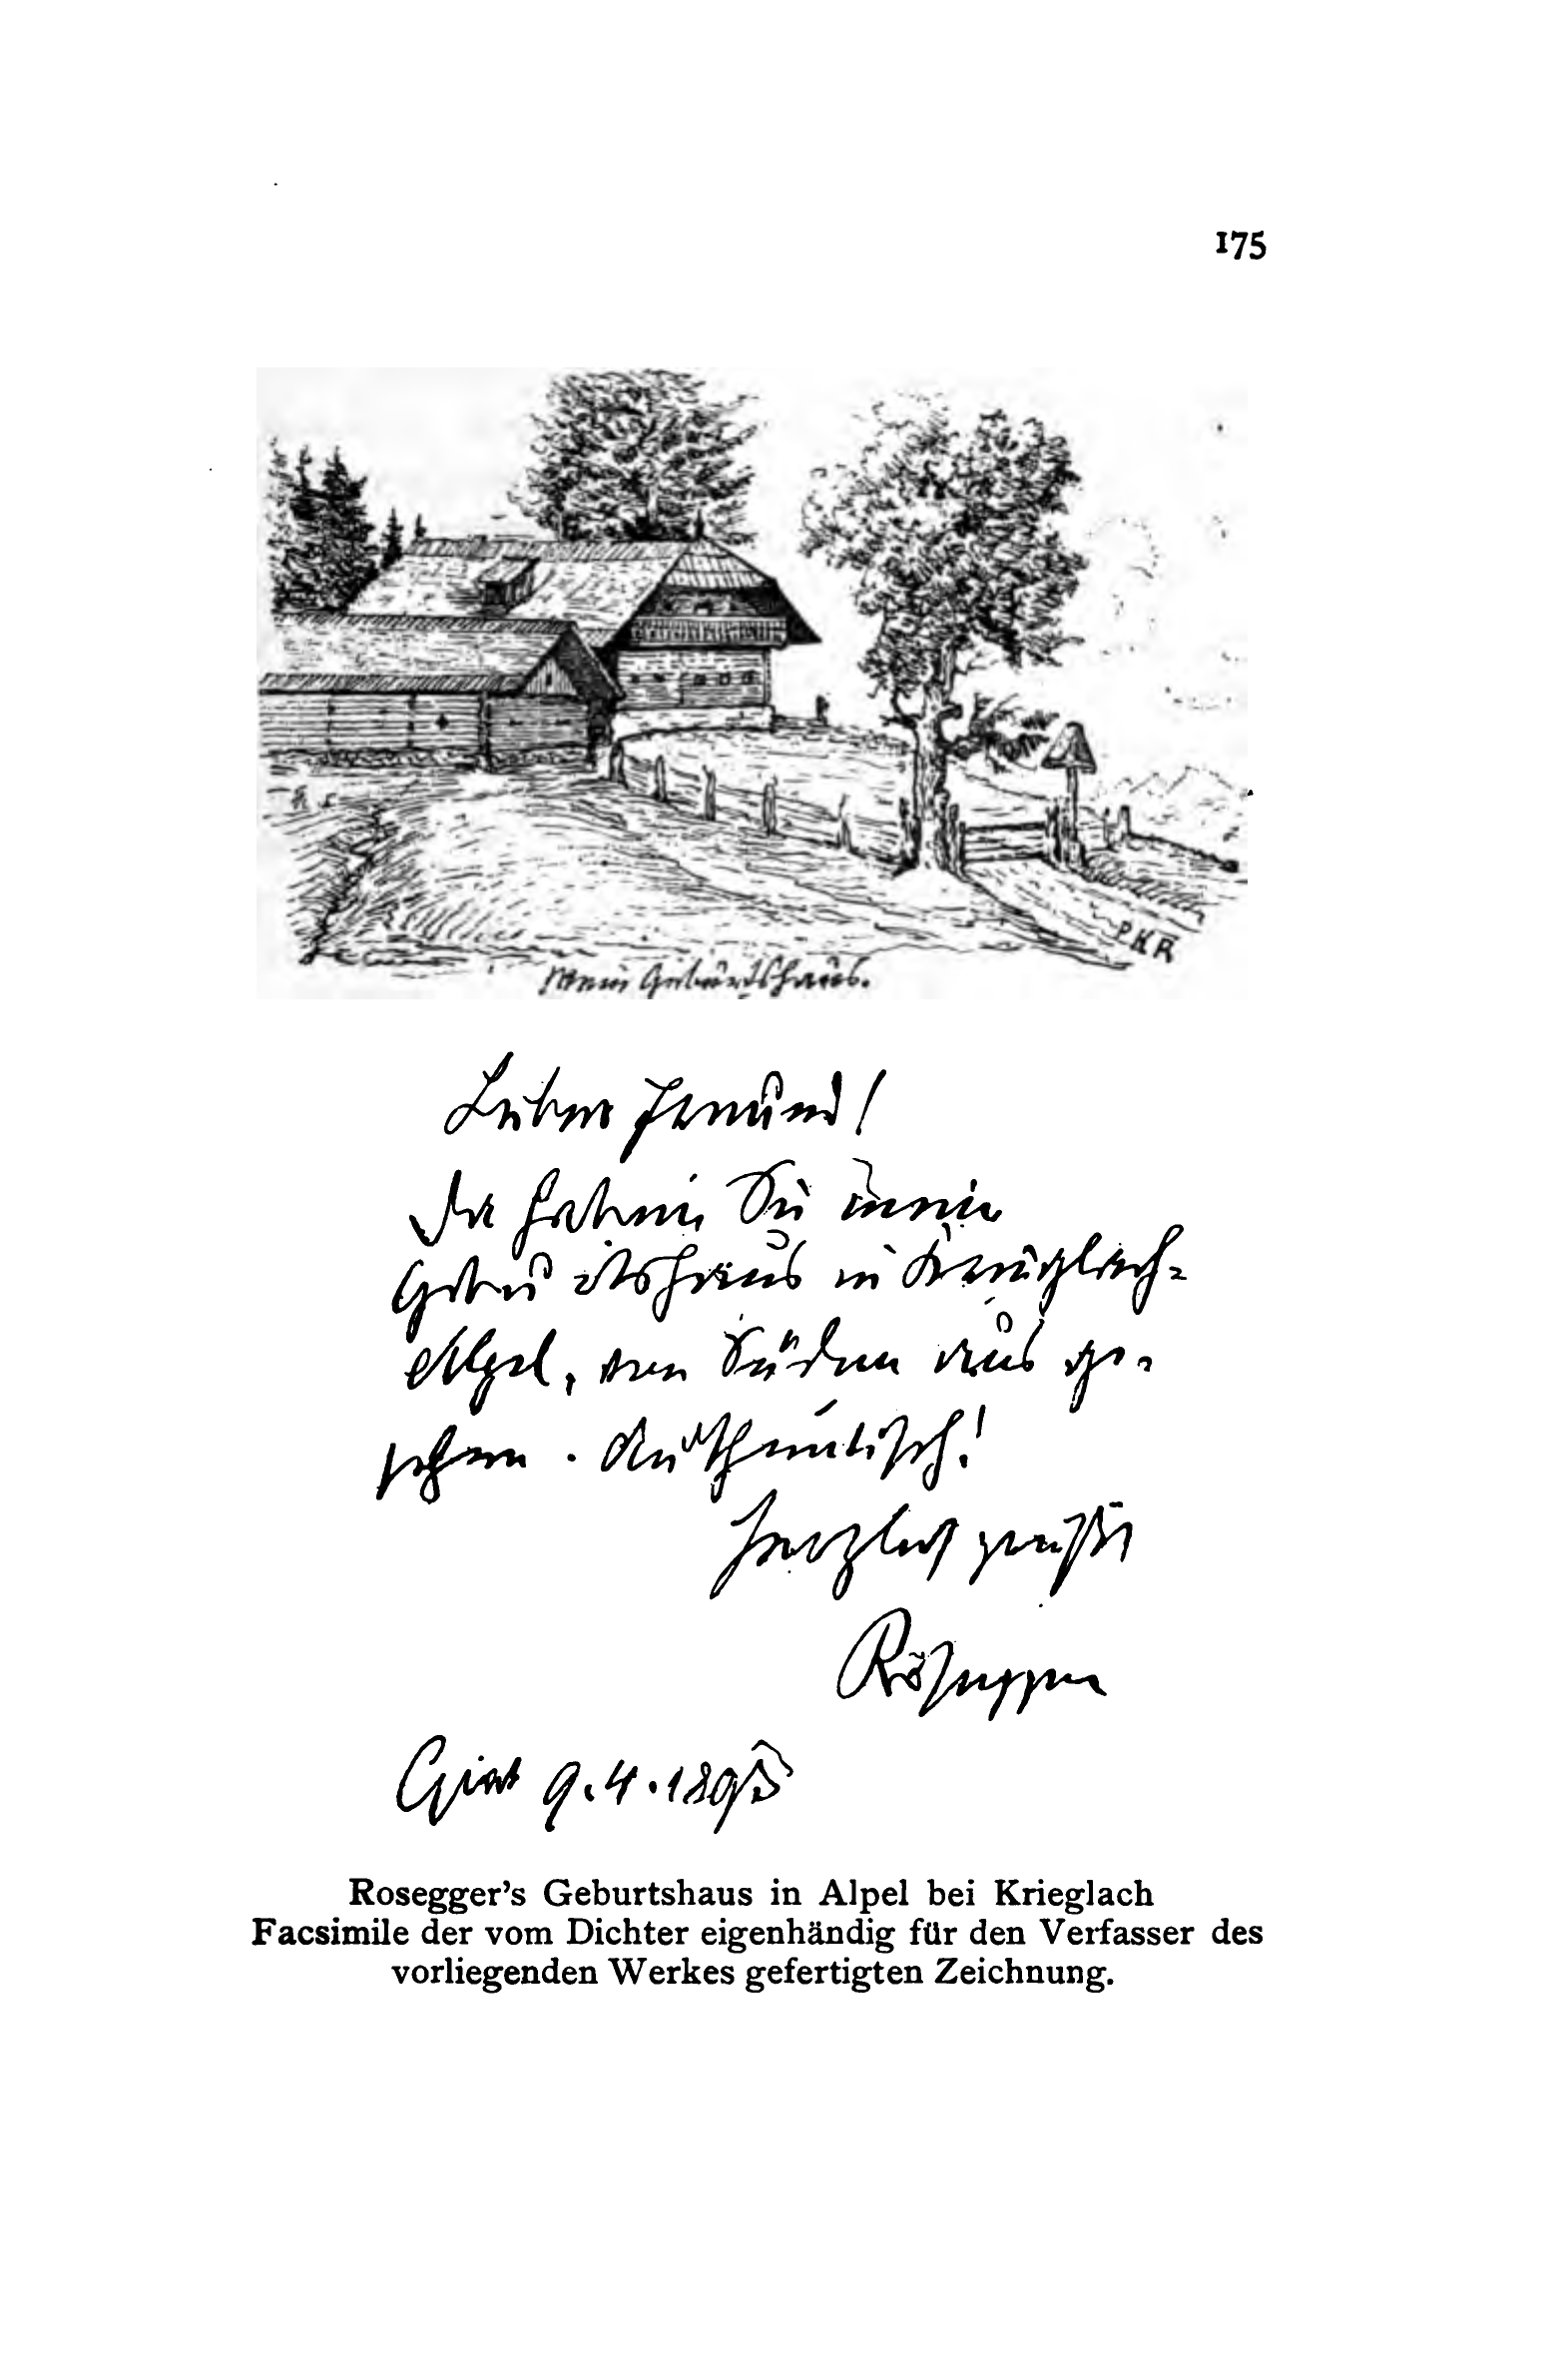 175
PKR
Mein Geburtshaus.
Lieber Freund!
Da haben Sie mein
Geburtshaus in Krieglach-
Alpel, von Süden aus ge-
sehen. Authentisch!
Herzlich grüßt
Rosegger
Graz 9.4.1895
Rosegger's Geburtshaus in Alpel bei Krieglach
Facsimile der vom Dichter eigenhändig für den Verfasser des
vorliegenden Werkes gefertigten Zeichnung.